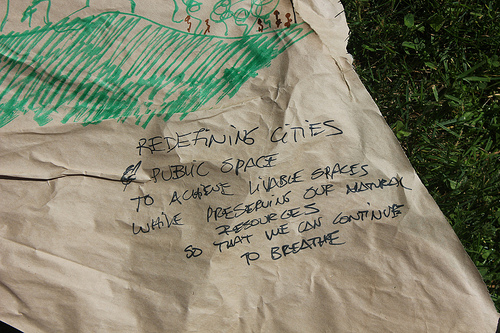 REDEFINING CITIES
& PUBLIC SPACE
TO ACHIEVE LIVABLE SPACES
WHILE PRESERVING OUR NATURAL
RESOURCES
SO THAT WE CAN CONTINUE
TO BREATHE